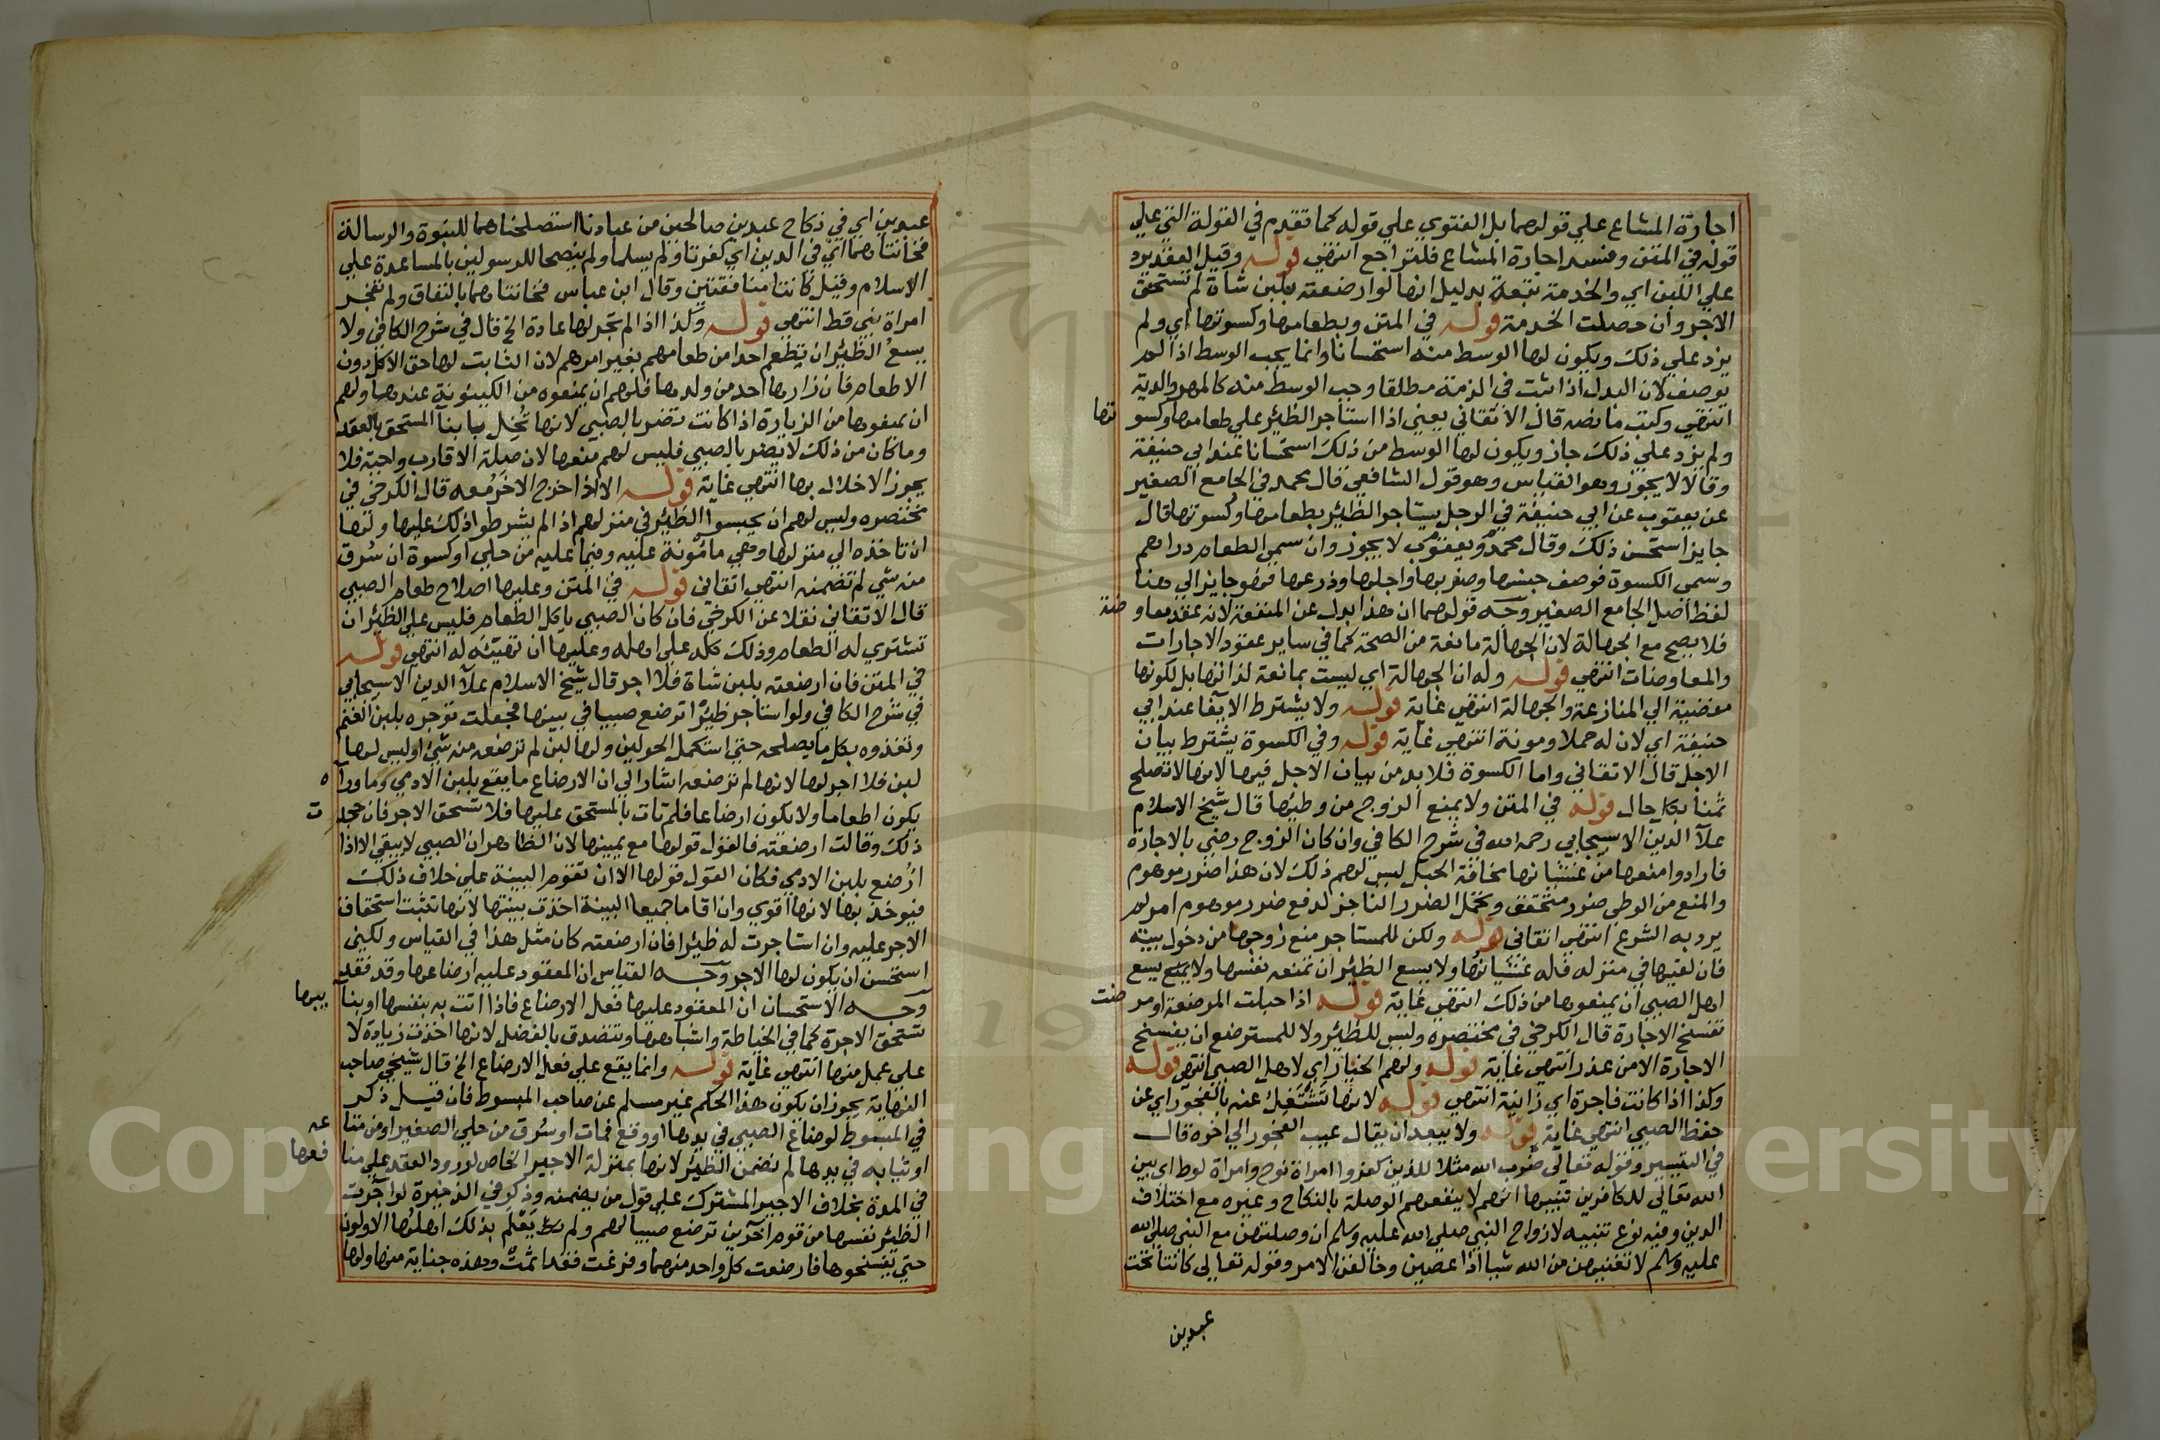 اجارة المشاع علي قولهما بل الفتوي علي قوله كما تقدم في القولة التي علي
قوله في المتن وفسد اجارة المشاع فلتراجع انتهي قوله وقيل العقد يرد
علي اللبن اي والخدمة تبعة بدليل انها لو ارضعته بلبن شاة لم تستحق
الاجر وان حصلت الخدمة قوله في المتن وبطعامها وكسوتها اي ولم
يزد علي ذلك ويكون لها الوسط منه استحسانا وانما يجب الوسط اذا لم
يوصف لان البدل اذا ثبت في الذمة مطلقا وجب الوسط منه كالمهر والدية
انتهي وكتب ما نصه قال الاتقاني يعني اذا استاجر الظئر علي طعامها وكسو
تها
ولم يزد علي ذلك جاز ويكون لها الوسط من ذلك استحسانا عند ابي حنيفة
وقالا لا يجوز وهو القياس وهو قول الشافعي قال محمد في الجامع الصغير
عن يعقوب عن ابي حنيفة في الرجل يستاجر الظئر بطعامها وكسوتها قال
جايز استحسن ذلك وقال محمد ويعقوب لا يجوز وان سمي الطعام دراهم
وسمي الكسوة فوصف جنسها وضربها واجلها وذرعها فهو جايز الي هنا
لفظ اصل الجامع الصغير وجه قولهما ان هذا بدل عن المنفعة لانه عقد معاو
ضة
فلا يصح مع الجهالة لان الجهالة مانعة من الصحة كما في ساير عقود الاجارات
والمعاوضات انتهي قوله وله ان الجهالة اي ليست بمانعة لذاتها بل لكونها
مفضية الي المنازعة والجهالة انتهي غاية قوله ولا يشترط الايفا عند ابي
حنيفة اي لان له حملا ومونة انتهي غاية قوله وفي الكسوة يشترط بيان
الاجل قال الاتقاني واما الكسوة فلا بد من بيان الاجل فيها لانها لا تصلح
ثمنا بكل حال قوله في المتن ولا يمنع الزوج من وطيها قال شيخ الاسلام
علآ الدين الاسبيجابي رحمه الله في شرح الكافي وان كان الزوج رضي بالاجارة
فارادوا منعها من غشيانها مخافة الحبل ليس لهم ذلك لان هذا ضرر موهوم
والمنع من الوطي ضرر متحقق وتحمل الضرر الناجز لدفع ضرر موهوم امر لم
يرد به الشرع انتهي اتقاني قوله ولكن للمستاجر منع زوجها من دخول بيته
فان لقيها في منزله فله غشيانها ولا يسع الظئر ان تمنعه نفسها ولا يسع
اهل الصبي ان يمنعوها من ذلك انتهي غاية قوله اذا حبلت المرضعة او مر
ضت
تفسخ الاجارة قال الكرخي في مختصره وليس للظئر ولا للمسترضع ان يفسخ
الاجارة الا من عذر انتهي غاية قوله ولهم الخيار اي لاهل الصبي انتهي قوله
وكذا اذا كانت فاجرة اي زانية انتهي قوله لانها تشتغل عنه بالفجور اي عن
حفظ الصبي انتهي غاية قوله ولا يبعد ان يقال عيب الفجور الي اخره قال
في التيسير وقوله تعالي ضرب الله مثلا للذين كفروا امراة نوح وامراة لوط اي بين
الله تعالي للكافرين تنبيها انهم لا ينفعهم الوصلة بالنكاح وغيره مع اختلاف
الدين وفيه نوع تنبيه لازواج النبي صلي الله عليه وسلم ان وصلتهن مع النبي صلي الله
عليه وسلم لا تغنيهن من الله شيا اذا عصين وخالفن الامر وقوله تعالي كانتا تحت
عبدين
عبدين اي في نكاح عبدين صالحين من عبادنا استصلحناهما للنبوة والرسالة
فخانتاهما اي في الدين اي كفرتا ولم يسلما ولم ينصحا للرسولين بالمساعدة علي
الاسلام وقيل كانتا منافقتين وقال ابن عباس فخانتاهما بالنفاق ولم تفجر
امراة نبي قط انتهي قوله وكذا اذا لم تجر لها عادة الخ قال في شرح الكافي ولا
يسع الظئر ان تطعم احدا من طعامهم بغير امرهم لان الثابت لها حق الاكل دون
الاطعام فان زارها احد من ولدها فلهم ان يمنعوه من الكينونة عندها ولهم
ان يمنعوها من الزيارة اذا كانت تضر بالصبي لانها تخل بايفآ المستحق بالعقد
وما كان من ذلك لا يضر بالصبي فليس لهم منعها لان صلة الاقارب واجبة فلا
يجوز الاخلال بها انتهي غاية قوله الا اذا خرج الاخر معه قال الكرخي في
مختصره وليس لهم ان يحبسوا الظئر في منزلهم اذا لم يشرطوا ذلك عليها ولها
ان تاخذه الي منزلها وهي مامونة عليه وفيما عليه من حلي او كسوة ان سرق
منه شي لم تضمنه انتهي اتقاني قوله في المتن وعليها اصلاح طعام الصبي
قال الاتقاني نقلا عن الكرخي فان كان الصبي ياكل الطعام فليس علي الظئر ان
تشتري له الطعام وذلك كله علي اهله وعليها ان تهيئه له انتهي قوله
في المتن فان ارضعته بلبن شاة فلا اجر قال شيخ الاسلام علآ الدين الاسبيجابي
في شرح الكافي ولو استاجر ظئرا ترضع صبيا في بيتها فجعلت توجره بلبن الغنم
وتغذوه بكل ما يصلحه حتي استكمل الحولين ولها لبن لم ترضعه منه شئ او ليس لها
لبن فلا اجر لها لانها لم ترضعه اشار الي ان الارضاع ما يقع بلبن الادمي وما ورآ
ه
يكون اطعاما ولا يكون ارضاعا فلم تات بالمستحق عليها فلا تستحق الاجر فان جحد
ت
ذلك وقالت ارضعته فالقول قولها مع يمينها لان الظاهر ان الصبي لا يبقي الا اذا
ارضع بلبن الادمي فكان القول قولها الا ان تقوم البينة علي خلاف ذلك
فيوخذ بها لانها اقوي وان اقاما جميعا البينة اخذت ببينتها لانها تثبت استحقاق
الاجر عليه وان استاجرت له ظئرا فان ارضعته كان مثل هذا في القياس ولكني
استحسن ان يكون لها الاجر وجه القياس ان المعقود عليه ارضاعها وقد فقد
وجه الاستحسان ان المعقود عليها فعل الارضاع فاذا اتت به بنفسها او بنا
يبها
تستحق الاجرة كما في الخياطة واشباهها وتتصدق بالفضل لانها اخذت زيادة لا
علي عمل منها انتهي غاية قوله وانما يقع علي فعل الارضاع الخ قال شيخي صاحب
النهاية يجوز ان يكون هذا الحكم غير مسلم عن صاحب المبسوط فان قيل ذكر
في المبسوط لو ضاع الصبي في يدها او وقع فمات او سرق من حلي الصغير او من متا
عه
او ثيابه في يدها لم تضمن الظئر لانها بمنزلة الاجير الخاص لورود العقد علي منا
فعها
في المدة بخلاف الاجير المشترك علي قول من يضمنه وذكر في الذخيرة لو اجرت
الظئر نفسها من قوم آخرين ترضع صبيا لهم ولم يعلم بذلك اهلها الاولون
حتي يفسخوها فارضعت كل واحد منهما وفرغت فقد اثمت وهذه جناية منها ولها